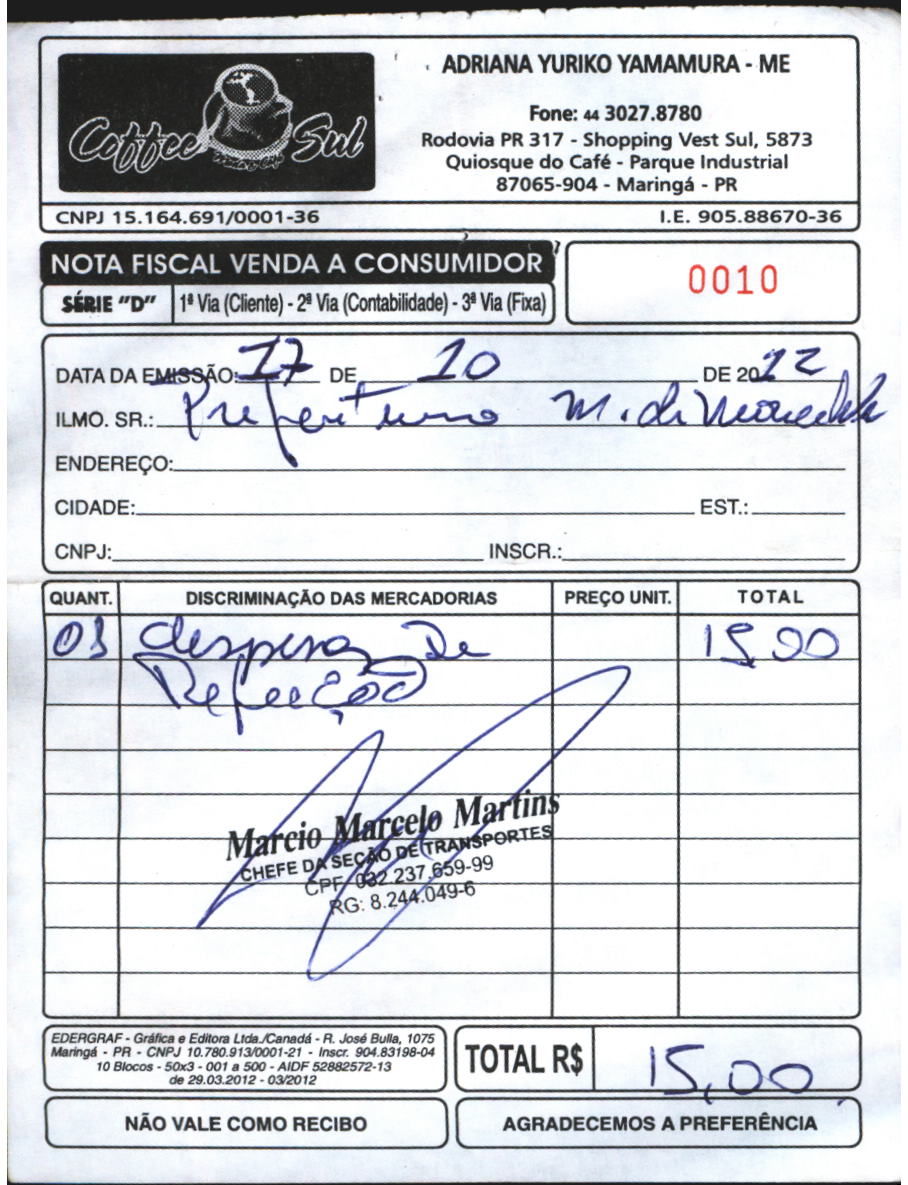 Coffee Sul
ADRIANA YURIKO YAMAMURA - ME
Fone: 44 3027.8780
Rodovia PR 317 - Shopping Vest Sul, 5873
Quiosque do Café - Parque Industrial
87065-904 - Maringá - PR
CNPJ 15.164.691/0001-36 I.E. 905.88670-36
NOTA FISCAL VENDA A CONSUMIDOR
0010
SÉRIE "D" 1ª Via (Cliente) - 2ª Via (Contabilidade) - 3ª Via (Fixa)
DATA DA EMISSÃO: 17 DE 10 DE 2012
ILMO. SR.: Prefeitura M. de
ENDEREÇO:
CIDADE: EST.:
CNPJ: INSCR.:
QUANT. DISCRIMINAÇÃO DAS MERCADORIAS PREÇO UNIT. TOTAL
01 despesas De 15,00
Refeição
Marcio Marcelo Martins
CHEFE DA SEÇÃO DE TRANSPORTES
CPF 032.237.659-99
RG: 8.244.049-6
EDERGRAF - Gráfica e Editora Ltda./Canadá - R. José Bulla, 1075
Maringá - PR - CNPJ 10.780.913/0001-21 - Inscr. 904.83198-04
10 Blocos - 50x3 - 001 a 500 - AIDF 52882572-13
de 29.03.2012 - 03/2012
TOTAL R$ 15,00
NÃO VALE COMO RECIBO
AGRADECEMOS A PREFERÊNCIA